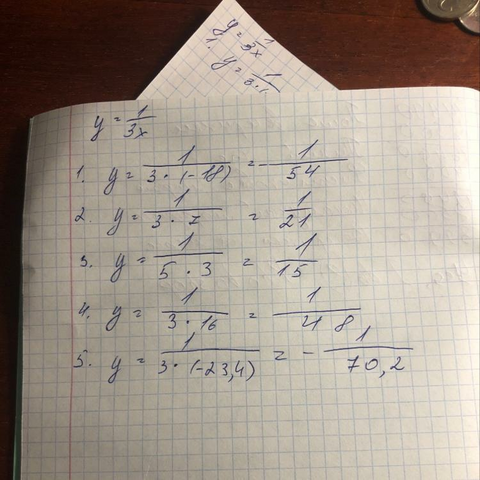 y = 1/3x
1. y = 1/3·1
y = 1/3x
1. y = 1/(3·(-18)) = -1/54
2. y = 1/(3·7) = 1/21
3. y = 1/(5·3) = 1/15
4. y = 1/(3·16) = 1/48
5. y = 1/(3·(-23,4)) = -1/70,2